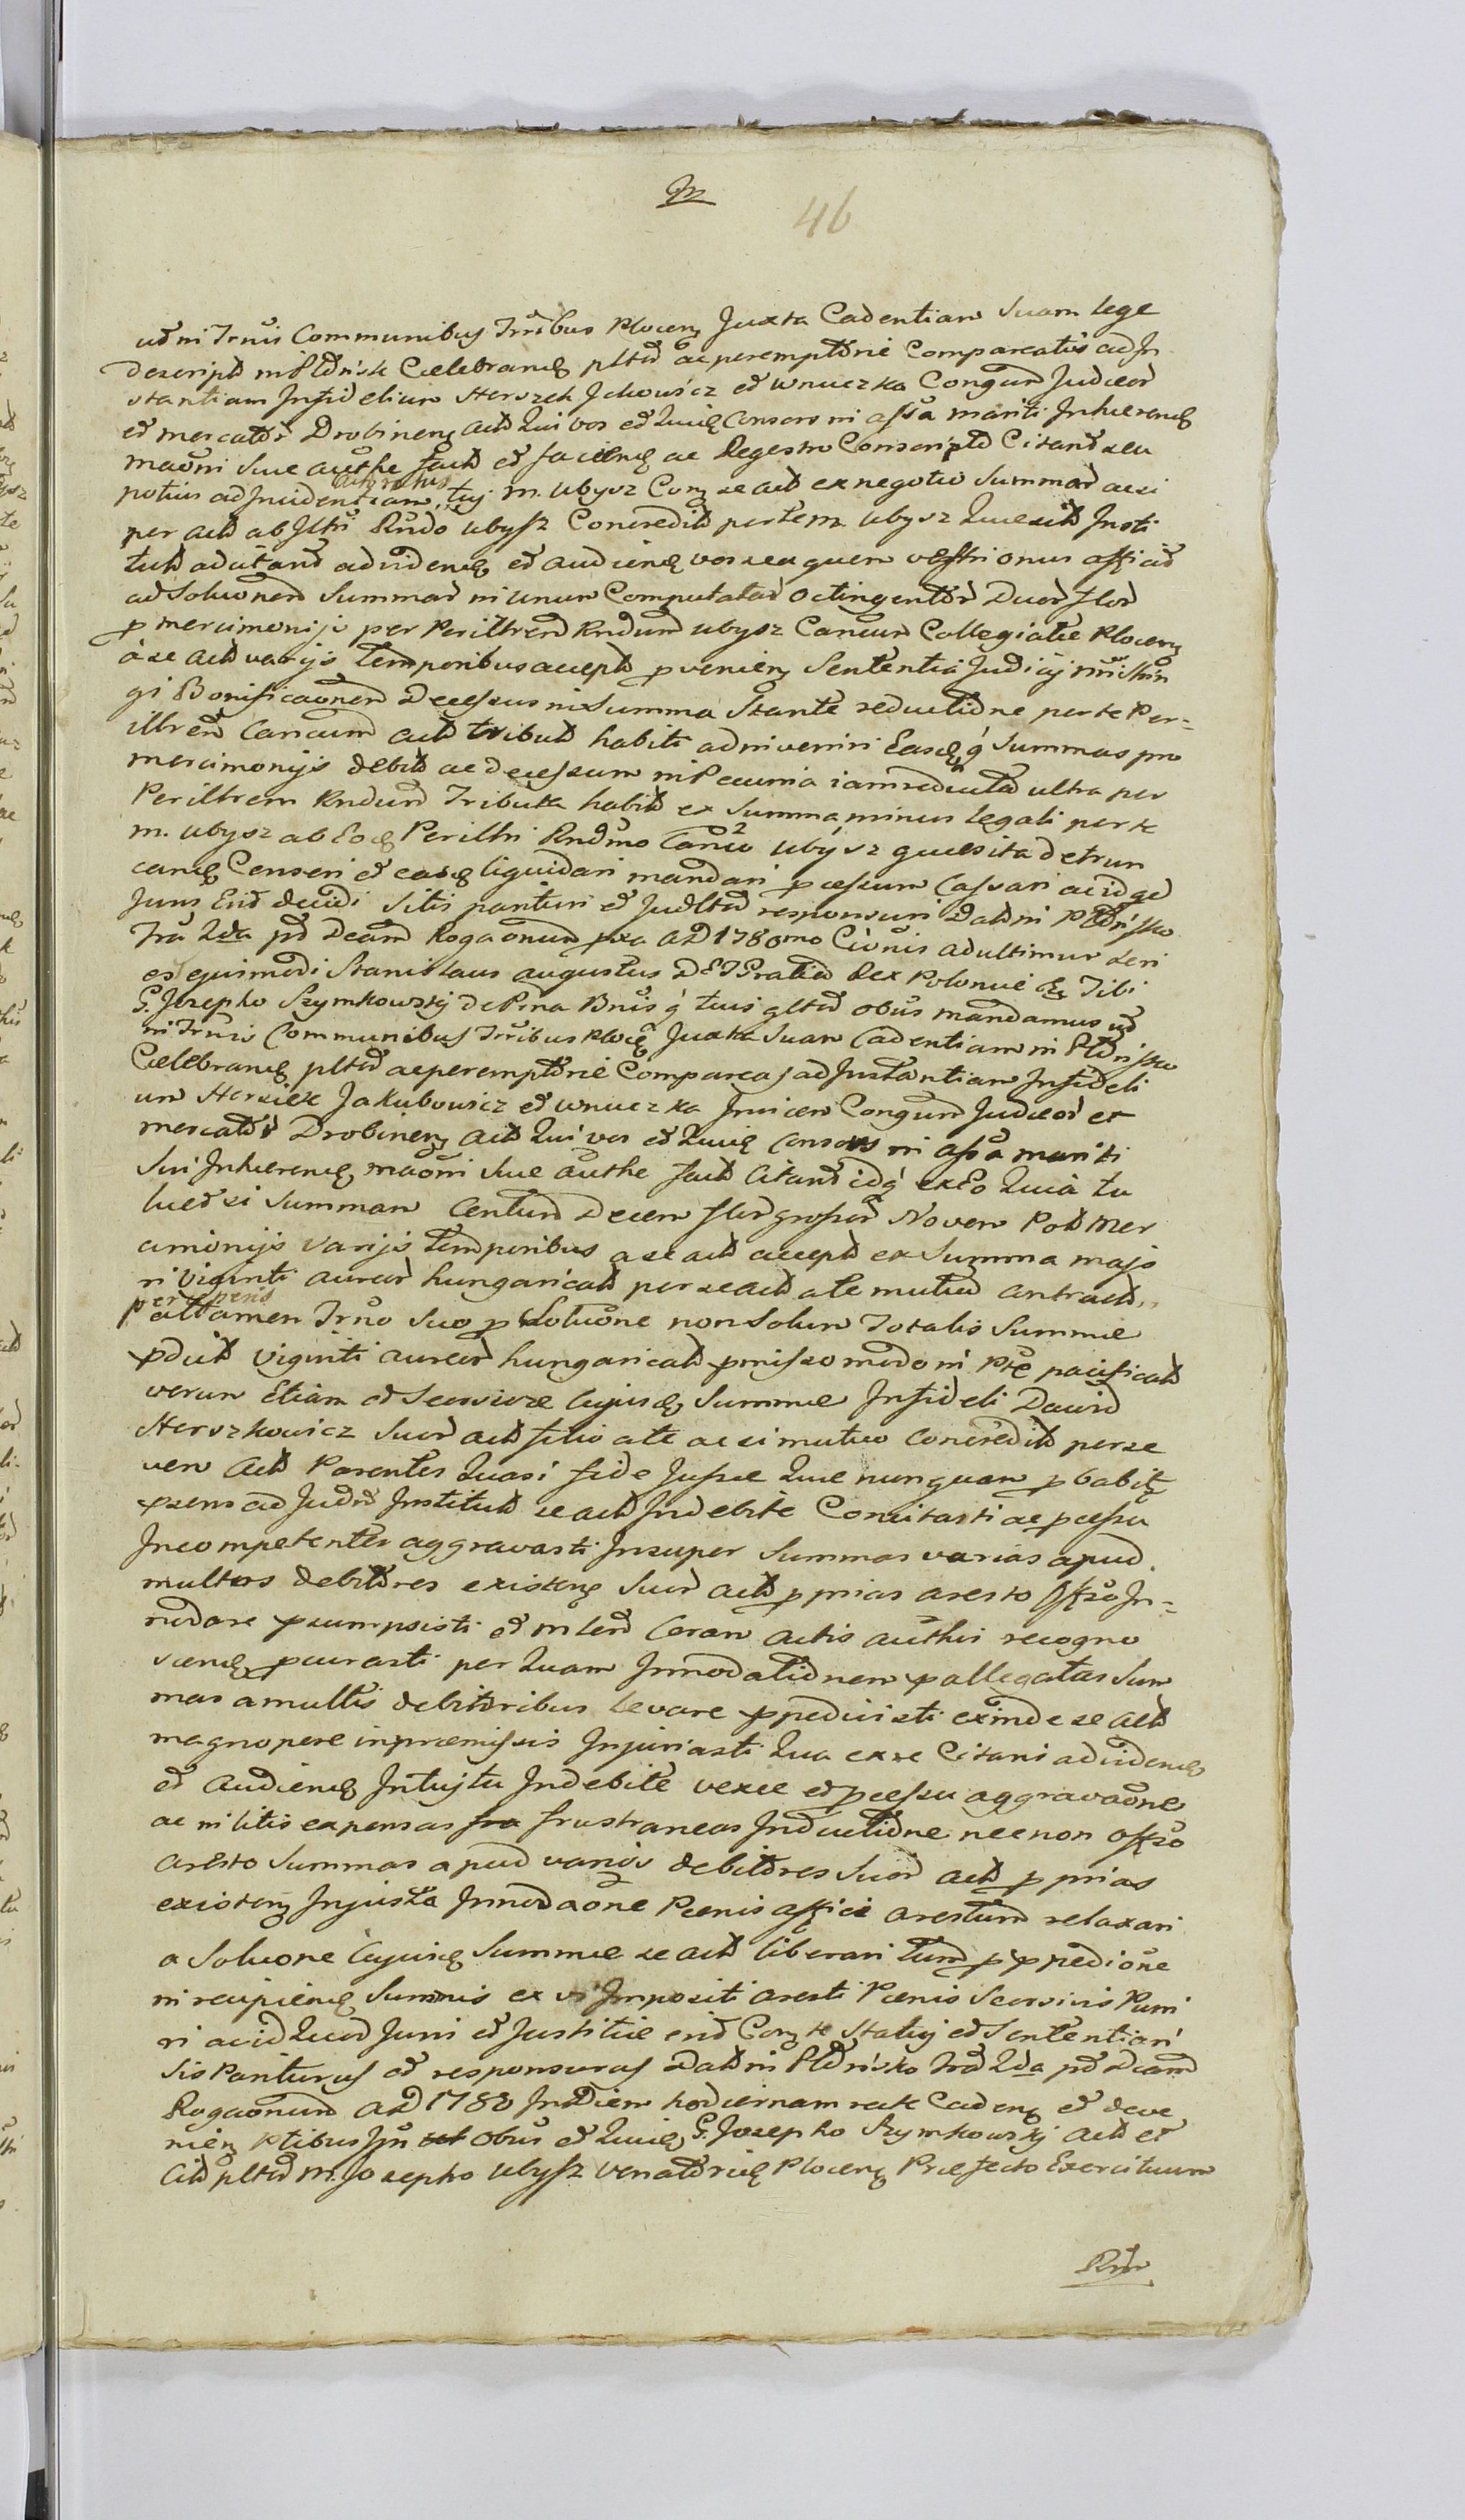 46
ut in Trnis Communibus Trribus Plocen Juxta Cadentiam Suam lege
descript in Pltdrisk Celebrand pltd ac peremptorie Compareatis ad In
stantiam Infidelium Herszek Jckowicz et Wnuczka Congum Judeor
et mercator Drobinen actd Qui vos et Quil Consors in assa mariti Inherend
maoni Sue authe factd et faciend ac Regestro Conscriptd Citand seu
potius ad Incidentiam actoratus tuj m. Ubysz Con se actd ex negotio Summar acsi
per actd ab Iltri Rndo Ubysz Concreditd per tem Ubysz Quesitd Insti
tutd ad citand ad videnc et audienc vos seu quem vestri onus afficit
ad Solutonem Summar in unum Computatar octingentor Duor flor
p mercimonijs per Periltrem Rndum Ubysz Cancum Collegiate Plocen
a se actd varijs temporibus acceptd p venien Sententia Judicij
gi Bonificaonem Decessus in Summa Stante reductione per te Per-
iltrem Cancum actd tributd habiti adinveniri Easdq Summas pro
mercimonijs debitd ac decessum in Pecunia iam reductad ultra per
Periltrem Rndum Tributa habitd ex Summa minus legati per te
m. Ubysz ab Eod Periltri Rndmo Canco Ubysz quesita detrun
cand Censeri et easd liquidari mandari pcessum Cassari ac id qd
Juris Erit decidi Sitis parituri et Judltd responsuri Datd in Pltdrisko
Fra 2da pt Dcam Rogaonum pxa AD 1780mo Cionis ad ultimum Seri
es ejusmodi Stanislaus Augustus DEI Gratia Rex Polonie Tibi
G. Josepho Szymkowskj de Pma Bnis q tuis gltd obus mandamus ut
in Trnis Communibus Trribus Plocen Juxta Suam Cadentiam in Pltdrisko
Celebrand pltd ac peremptorie Compareas ad Instantiam Infideli
um Herszek Jakubowicz et Wnuczka Invicem Congum Judeor et
mercator Drobinen actd Qui vos et Quil Consors in assa mariti
Sui Inherend maoni Sue authe factd Citand idq ex Eo Quia tu
luet si Summam Centum Decem flor grossor Novem Pold Mer
cimonijs Varijs temporibus a se actd acceptd ex Summa majo
ri Viginti aureor hungaricald per se actd a te mutuo contractd
perceperis attamen Trno Suo p Solutone non Solum Totalis Summe
pdictd Viginti aureor hungaricald pmisso modo in Pte pacificatd
verum Etiam et Seorsive Cujusd Summe Infideli Dawid
Herszkowicz Suor actd filio a te ac si mutuo Concreditd per se
vero actd Parentes Quasi fide Jusse Que nunquam pbabit
psens ad Judm Institutd se actd Indebite Concitasti ac pcessu
Incompetenter aggravasti Insuper Summas varias apud
multos debitores existen Suor actd pprias aresto Offzo In-
nodare psumpsisti et in leid Coram actis authis recogno
scend pcurasti per Quam Innodationem pallegatas Sum
mas a multis debitoribus levare ppedivisti exinde se actd
magnopere in premissis Injuriasti Qua ex re Citaris ad videnc
et Audienc Intujtu Indebite vexe et pcessu aggravaone
ac in litis expensas frustraneas Inductione necnon Offzo
Aresto Summas apud varios debitores Suor actd pprias
existen Injusta Innodaone Penis affici arestum relaxari
a Solutone Cujusd Summe se actd liberari tum p ppedione
in recipiend Summis ex vi Impositi aresti Penis Seorsivis Puni
ri ac id Quod Juris et Justitie erit Con te Statuj et Sententiari
Sis Pariturus et responsurus Datd in Pltdrisko Fra 2da pt Dcam
Rogaonum AD 1780 In Diem hodiernam recte Cadend et deve
nien Ptibus Ijn Obus et Quil G. Josepho Szymkowskj actd et
Citd pltd M. Josepho Ubysz Venatoricd Plocen Prefecto Exercituum
Rm